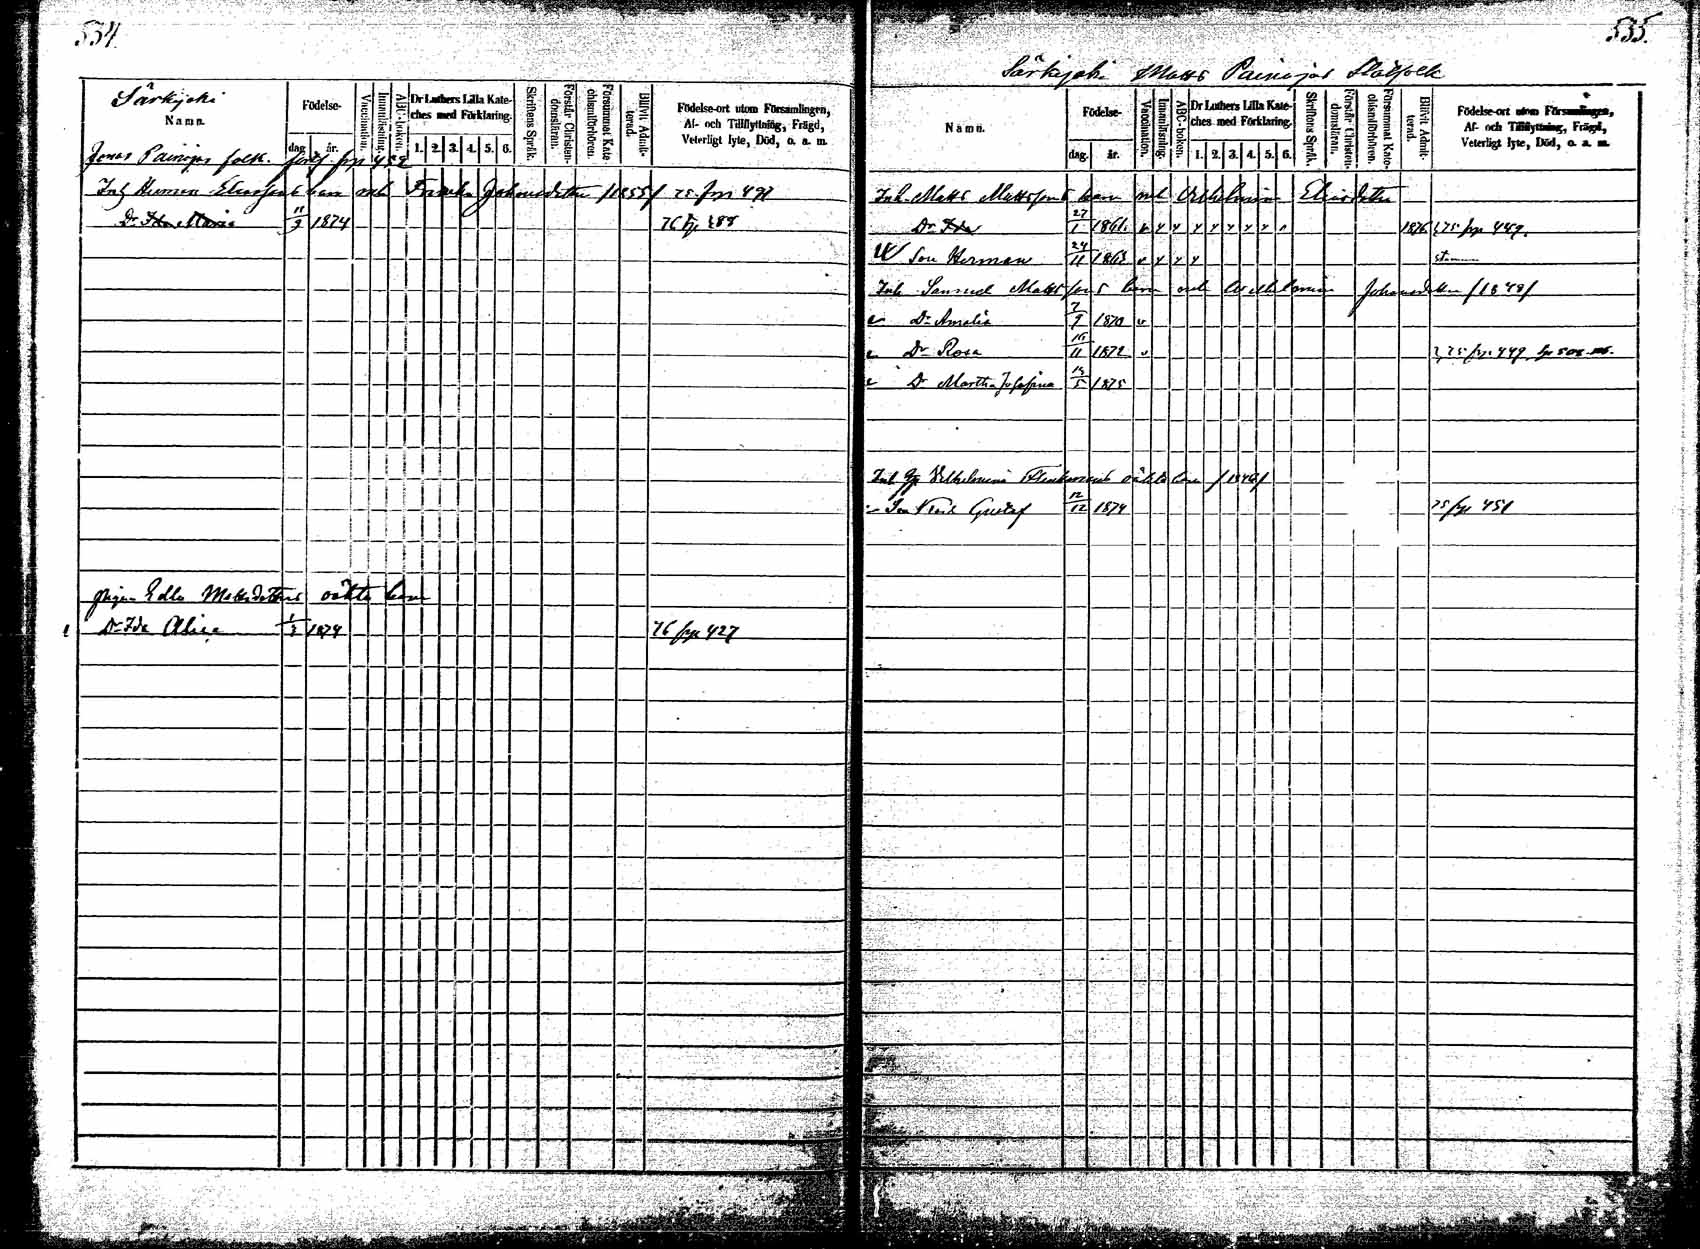 534.
Särkijoki
Namn.
Födelse-
dag
år.
Vaccination.
Innanläsning.
ABC-boken.
Dr Luthers Lilla Kate-
ches med Förklaring.
1. 2. 3. 4. 5. 6.
Skriftens Språk.
Förstår Christen-
domsläran.
Försummat Kate-
chismiförhören.
Blifvit Admit-
terad.
Födelse-ort utom Församlingen,
Af- och Tillflyttning, Frägd,
Veterligt lyte, Död, o. a. m.
Jonas Painojas folk.
Inh Herman Eliassons barn med Johansdotter /1855/ 75 frp 471
Dr Ida Maria 11/3 1874 76
pigan Edla Mattsdotters oäkta barn
Dr Ida Alice 1874 76 frp 427
535.
Särkijoki Matts Painojas Stålfolk
Namn.
Födelse-
dag.
år.
Vaccination.
Innanläsning.
ABC-boken.
Dr Luthers Lilla Kate-
ches med Förklaring.
1. 2. 3. 4. 5. 6.
Skriftens Språk.
Förstår Christen-
domsläran.
Försummat Kate-
chismiförhören.
Blifvit Admit-
terad.
Födelse-ort utom Församlingen,
Af- och Tillflyttning, Frägd,
Veterligt lyte, Död, o. a. m.
Inh. Matts Mattssons barn med Vilhelmina Eliasdotter
Dr Ida 27/1 1861 1876 75 frp 449.
Son Herman 24/11 1863
Inh Samuel Mattssons barn med Vilhelmina Johansdotter /1848/
Dr Amalia 7/9 1870
Dr Rosa 16/11 1872 75 frp 449
Dr Martha Josefina 5 1875
Inh Vilhelmina oäkta barn /1846/
Son Karl Gustaf 12/12 1874 75 frp 451